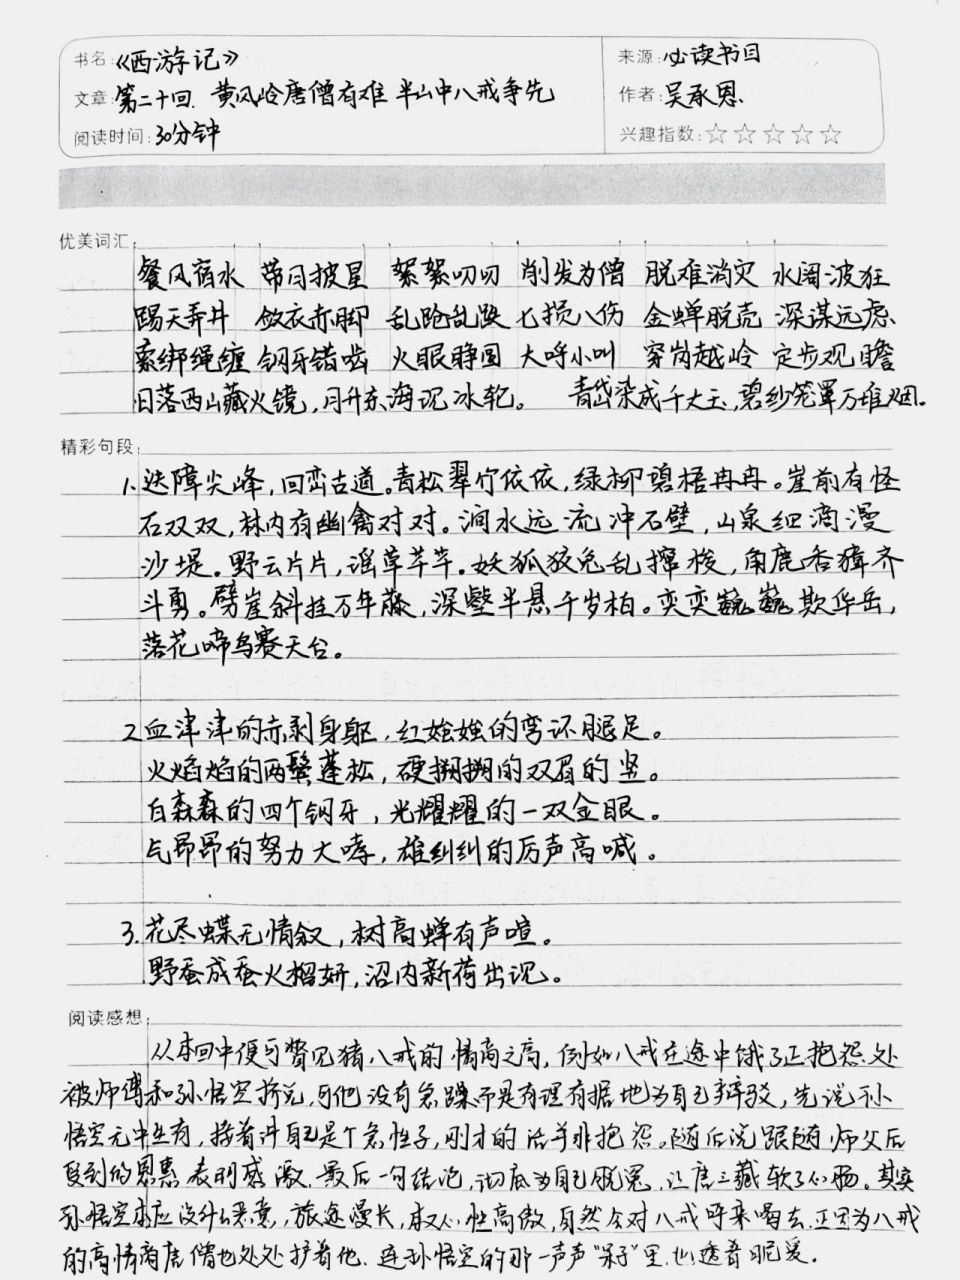 书名:《西游记》
来源:必读书目
文章:第二十回.黄风岭唐僧有难 半山中八戒争先
作者:吴承恩.
阅读时间:30分钟
兴趣指数:☆☆☆☆☆
优美词汇:
餐风宿水 带月披星 絮絮叨叨 削发为僧 脱难消灾 水阔波狂
踢天弄井 敛衣赤脚 乱跄乱跌 七损八伤 金蝉脱壳 深谋远虑
索绑绳缠 钢牙错啮 火眼睁圆 大呼小叫 穿岗越岭 定步观瞻
日落西山藏火镜,月升东海现冰轮。 青岱染成千丈玉,碧纱笼罩万堆烟.
精彩句段:
1.迭障尖峰,回峦古道。青松翠竹依依,绿柳碧梧冉冉。崖前有怪
石双双,林内有幽禽对对。涧水远流冲石壁,山泉细滴漫
沙堤。野云片片,瑶草芊芊。妖狐狡兔乱撺梭,角鹿香獐齐
斗勇。劈崖斜挂万年藤,深壑半悬千岁柏。奕奕巍巍欺华岳,
落花啼鸟赛天台。
2.血津津的赤剥身躯,红姶姶的弯环腿足。
火焰焰的两鬓蓬松,硬搠搠的双眉的竖。
白森森的四个钢牙,光耀耀的一双金眼。
气昂昂的努力大哮,雄纠纠的厉声高喊。
3.花尽蝶无情叙,树高蝉有声喧。
野蚕成蚕火榴妍,沼内新荷出现。
阅读感想:
从本回中便可瞥见猪八戒的情商之高,例如八戒在途中饿了正抱怨.处
被师傅和孙悟空拆说,可他没有急躁而是有理有据地为自己辩驳,先说孙
悟空无中生有,接着讲自己是个急性子,刚才的话并非抱怨。随后说跟随师父后
受到的恩惠表明感激.最后一句结论,彻底为自己脱冤,让唐三藏软了心肠。其实
孙悟空本应没什么恶意,旅途漫长,本又心性高傲,自然会对八戒呼来喝去.正因为八戒
的高情商唐僧也处处护着他.连孙悟空的那一声声“呆子”里.也透着昵爱.